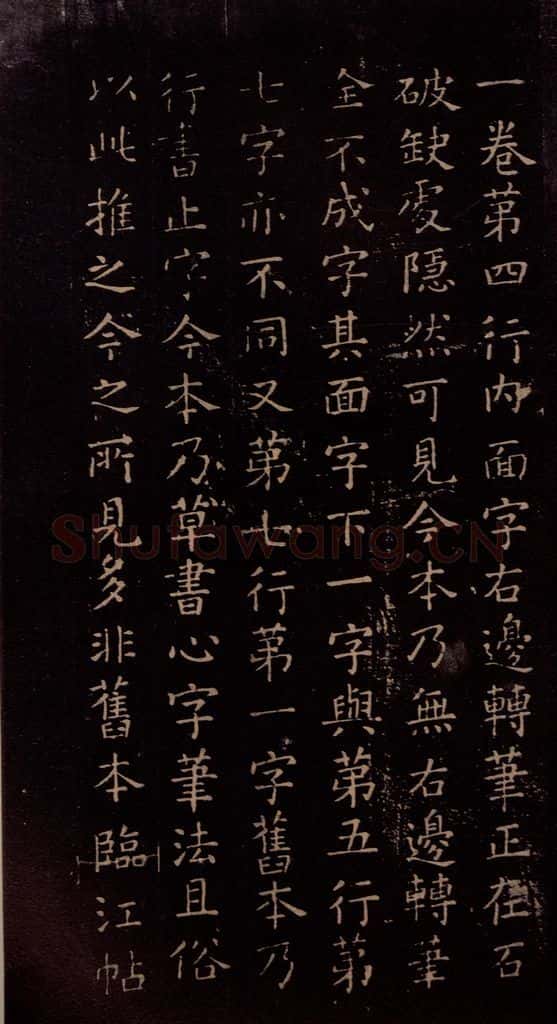 一卷第四行内面字右邊轉筆正在石
破缺處隱然可見今本乃無右邊轉筆
全不成字其面字下一字與第五行第
七字亦不同又第七行第一字舊本乃
行書止字今本乃草書心字筆法且俗
以此推之今之所見多非舊本臨江帖
Shufawang.CN